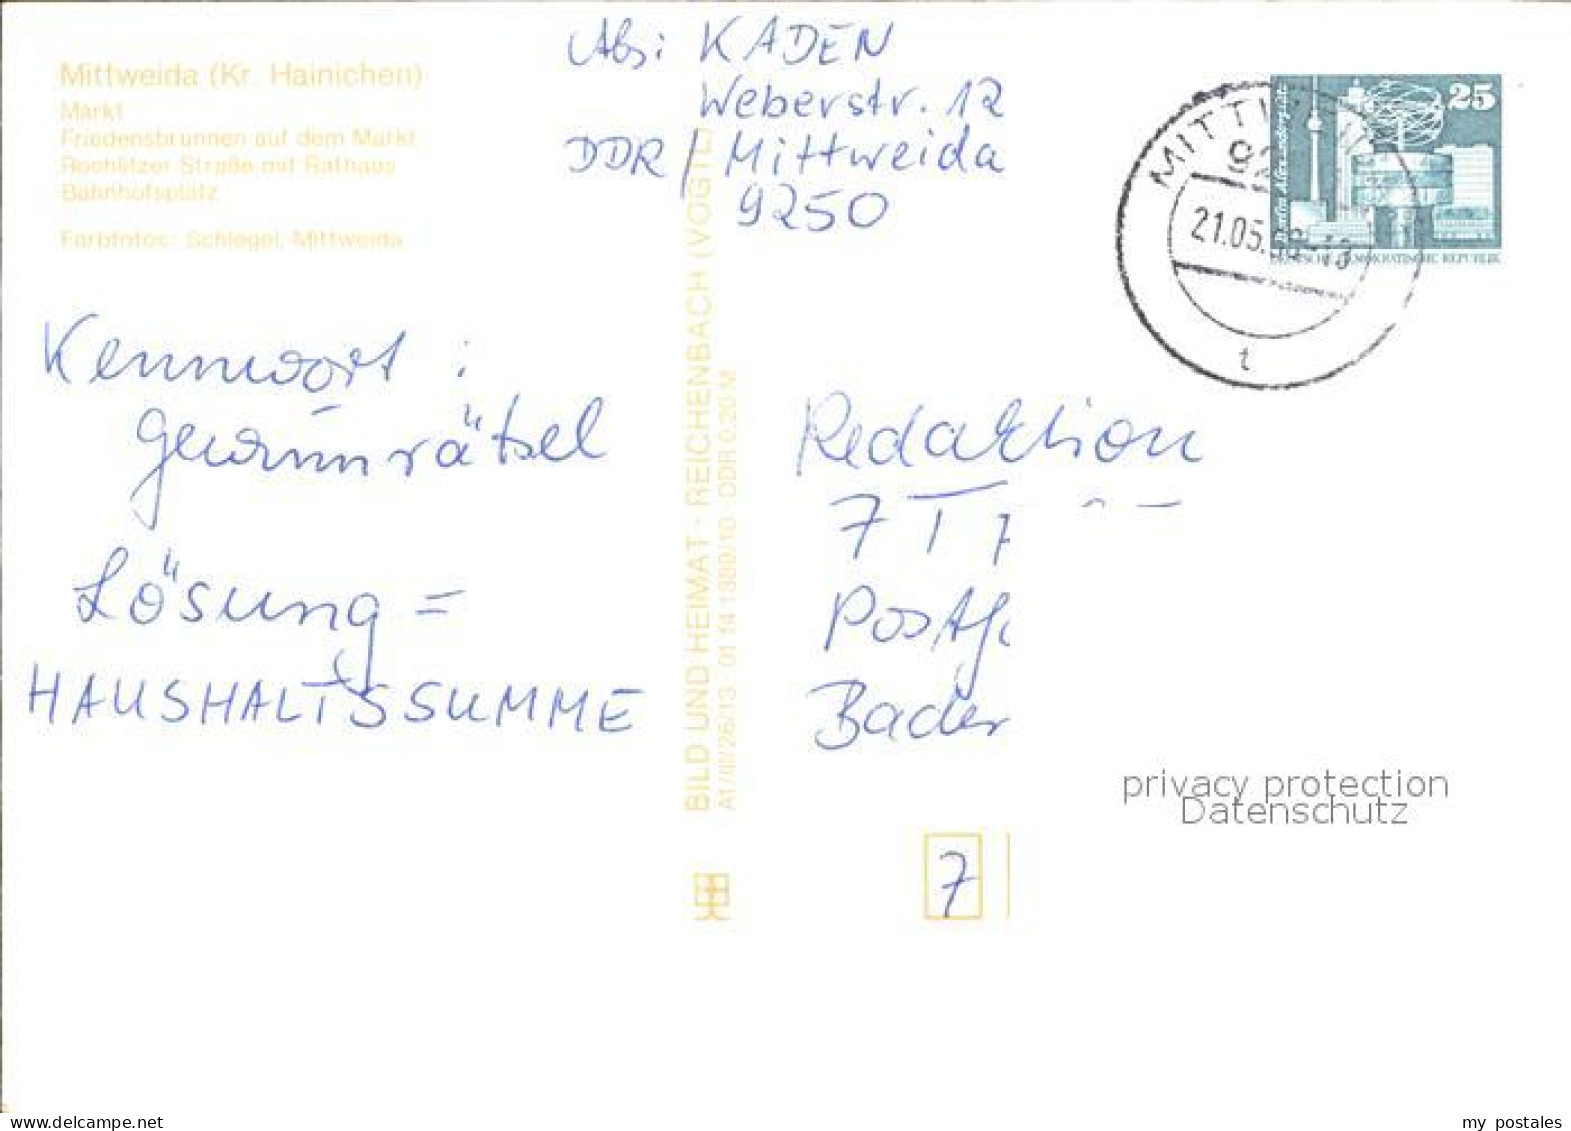 Mittweida (Kr. Hainichen)
Markt
Friedensbrunnen auf dem Markt
Rochlitzer Straße mit Rathaus
Bahnhofsplatz
Farbfotos: Schlegel, Mittweida
Abs: KADEN
Weberstr. 12
DDR / Mittweida
9250
Kennwort :
gewinnrätsel
Lösung =
HAUSHALTSSUMME
BILD UND HEIMAT · REICHENBACH (VOGTL)
A1/III/26/13 01 14 1389/10 · DDR 0,20 M
MITTW
92
21.05.
t
25
Berlin, Alexanderplatz
DEUTSCHE DEMOKRATISCHE REPUBLIK
Redaktion
7
Bader
7
privacy protection
Datenschutz
www.delcampe.net
my_postales